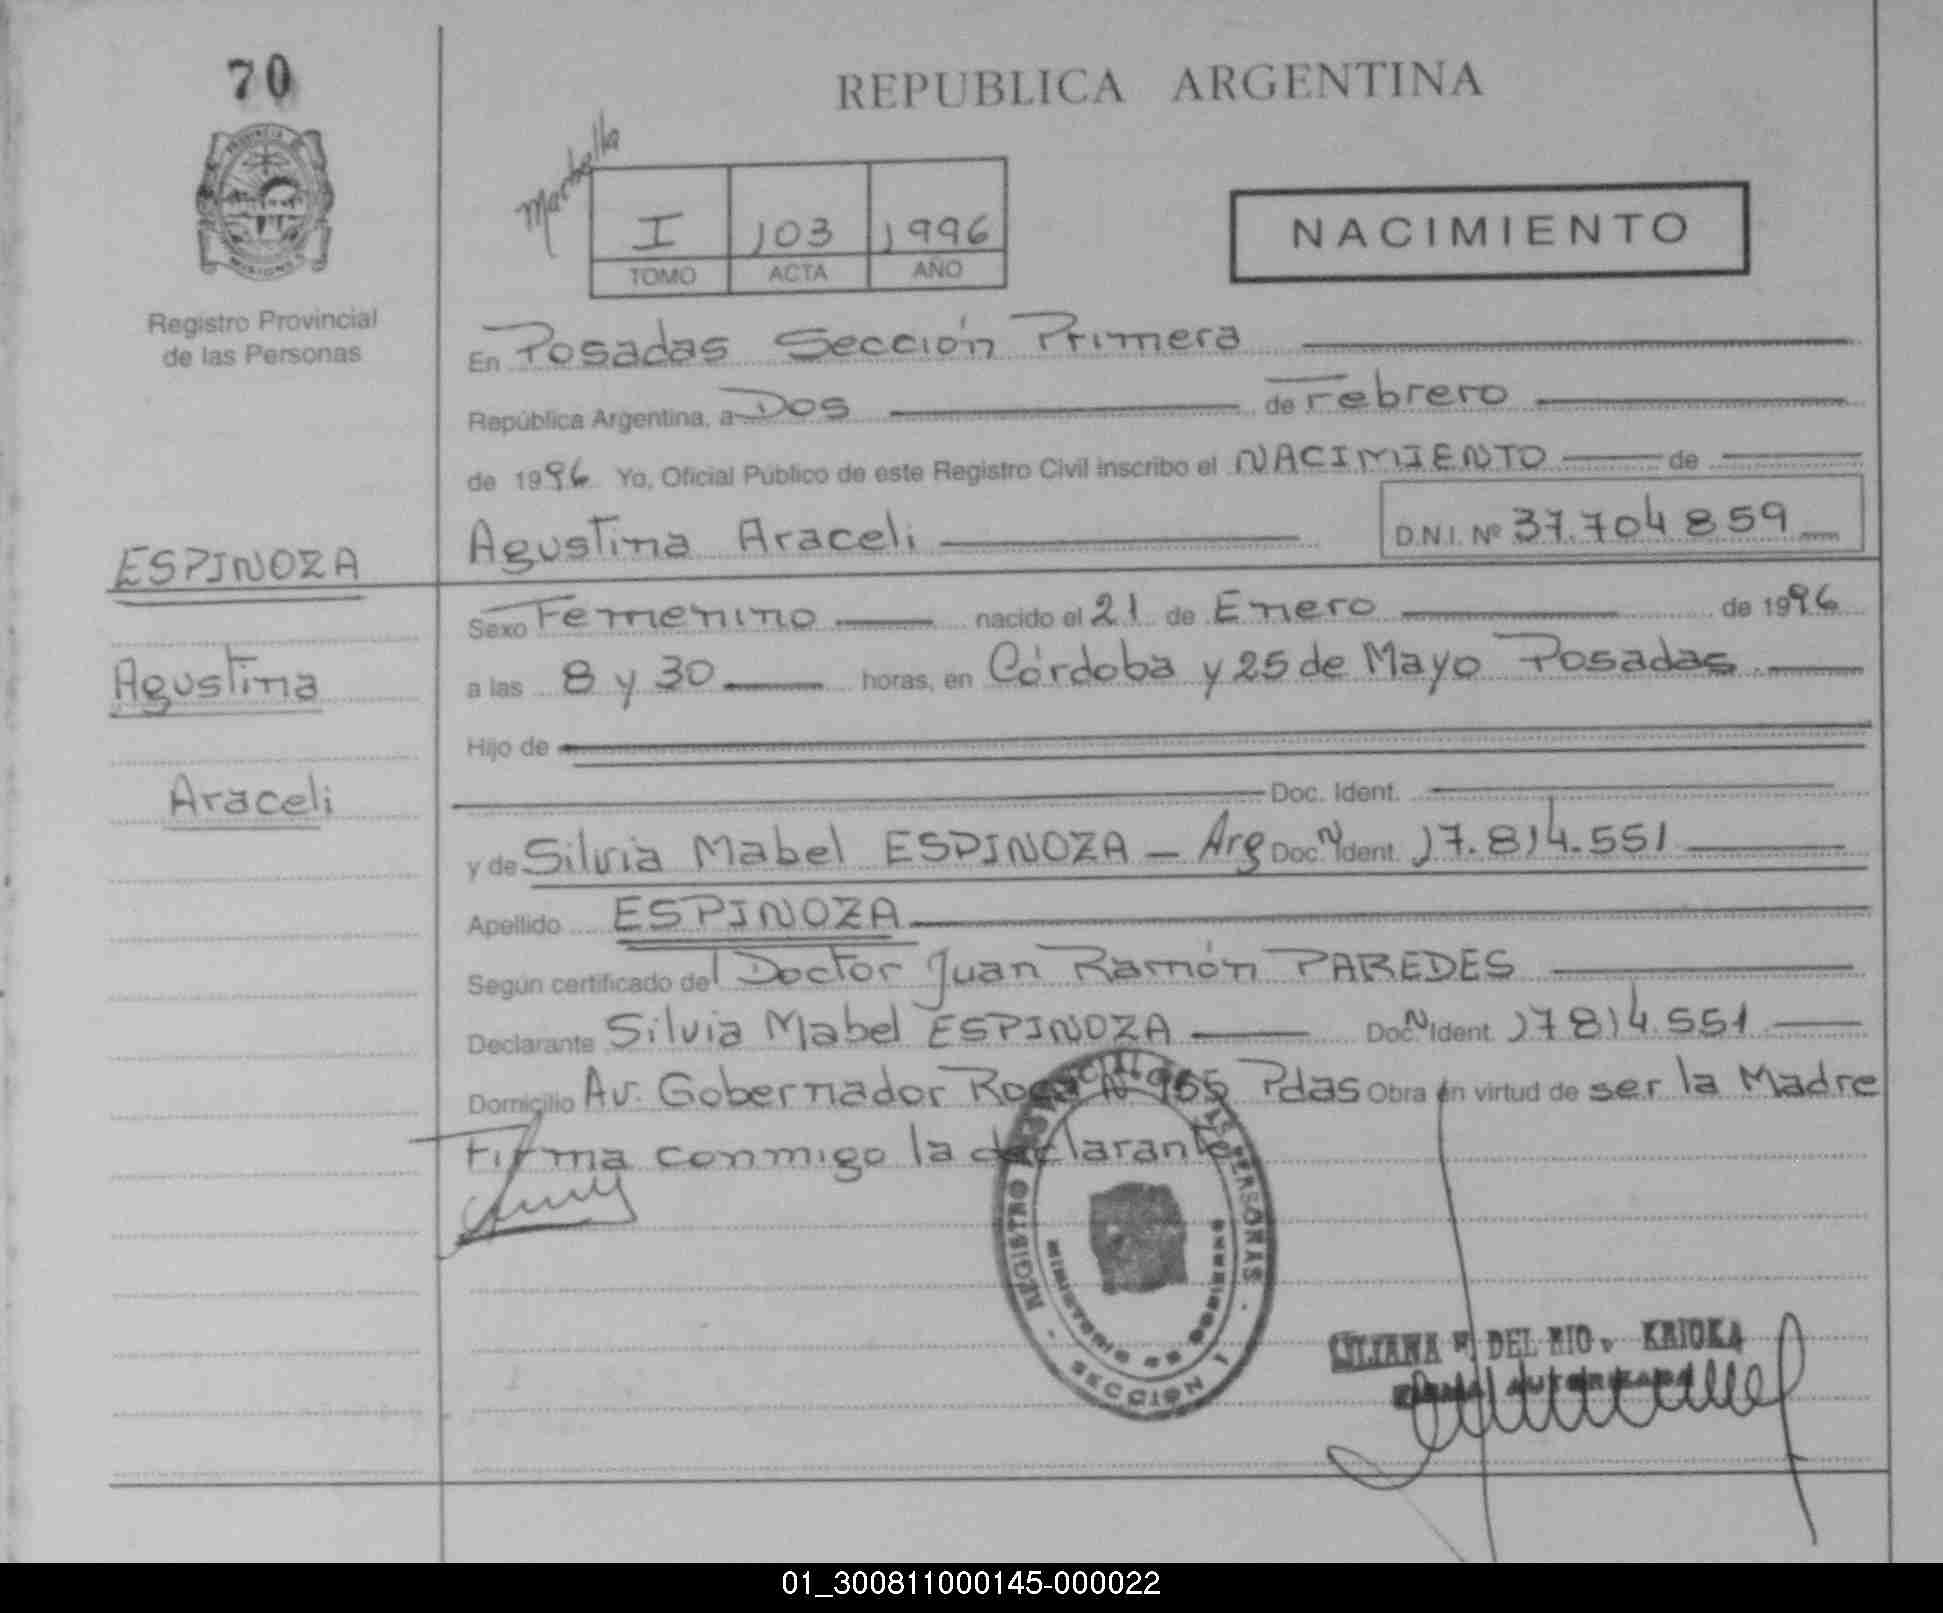 70
REPUBLICA ARGENTINA
Marbella
I 103 1996
TOMO ACTA AÑO
NACIMIENTO
PROVINCIA DE
MISIONES
Registro Provincial
de las Personas
En Posadas Sección Primera
República Argentina, a Dos de Febrero
de 1996 Yo, Oficial Público de este Registro Civil inscribo el NACIMIENTO de
Agustina Araceli D.N.I. Nº 37.704859
ESPINOZA
Agustina
Araceli
Sexo Femenino nacido el 21 de Enero de 1996
a las 8 y 30 horas, en Córdoba y 25 de Mayo Posadas
Hijo de
Doc. Ident.
y de Silvia Mabel ESPINOZA - Arg Doc. N Ident. 17.814.551
Apellido ESPINOZA
Según certificado del Doctor Juan Ramón PAREDES
Declarante Silvia Mabel ESPINOZA Doc. N Ident. 17814.551
Domicilio Av. Gobernador Roca N 955 Pdas Obra en virtud de ser la Madre
Firma conmigo la declarante
REGISTRO PERSONAS
MINISTERIO DE GOBIERNO
SECCION 1
LILIANA DEL RIO KRIOKA
FIRMA AUTORIZADA
01_300811000145-000022